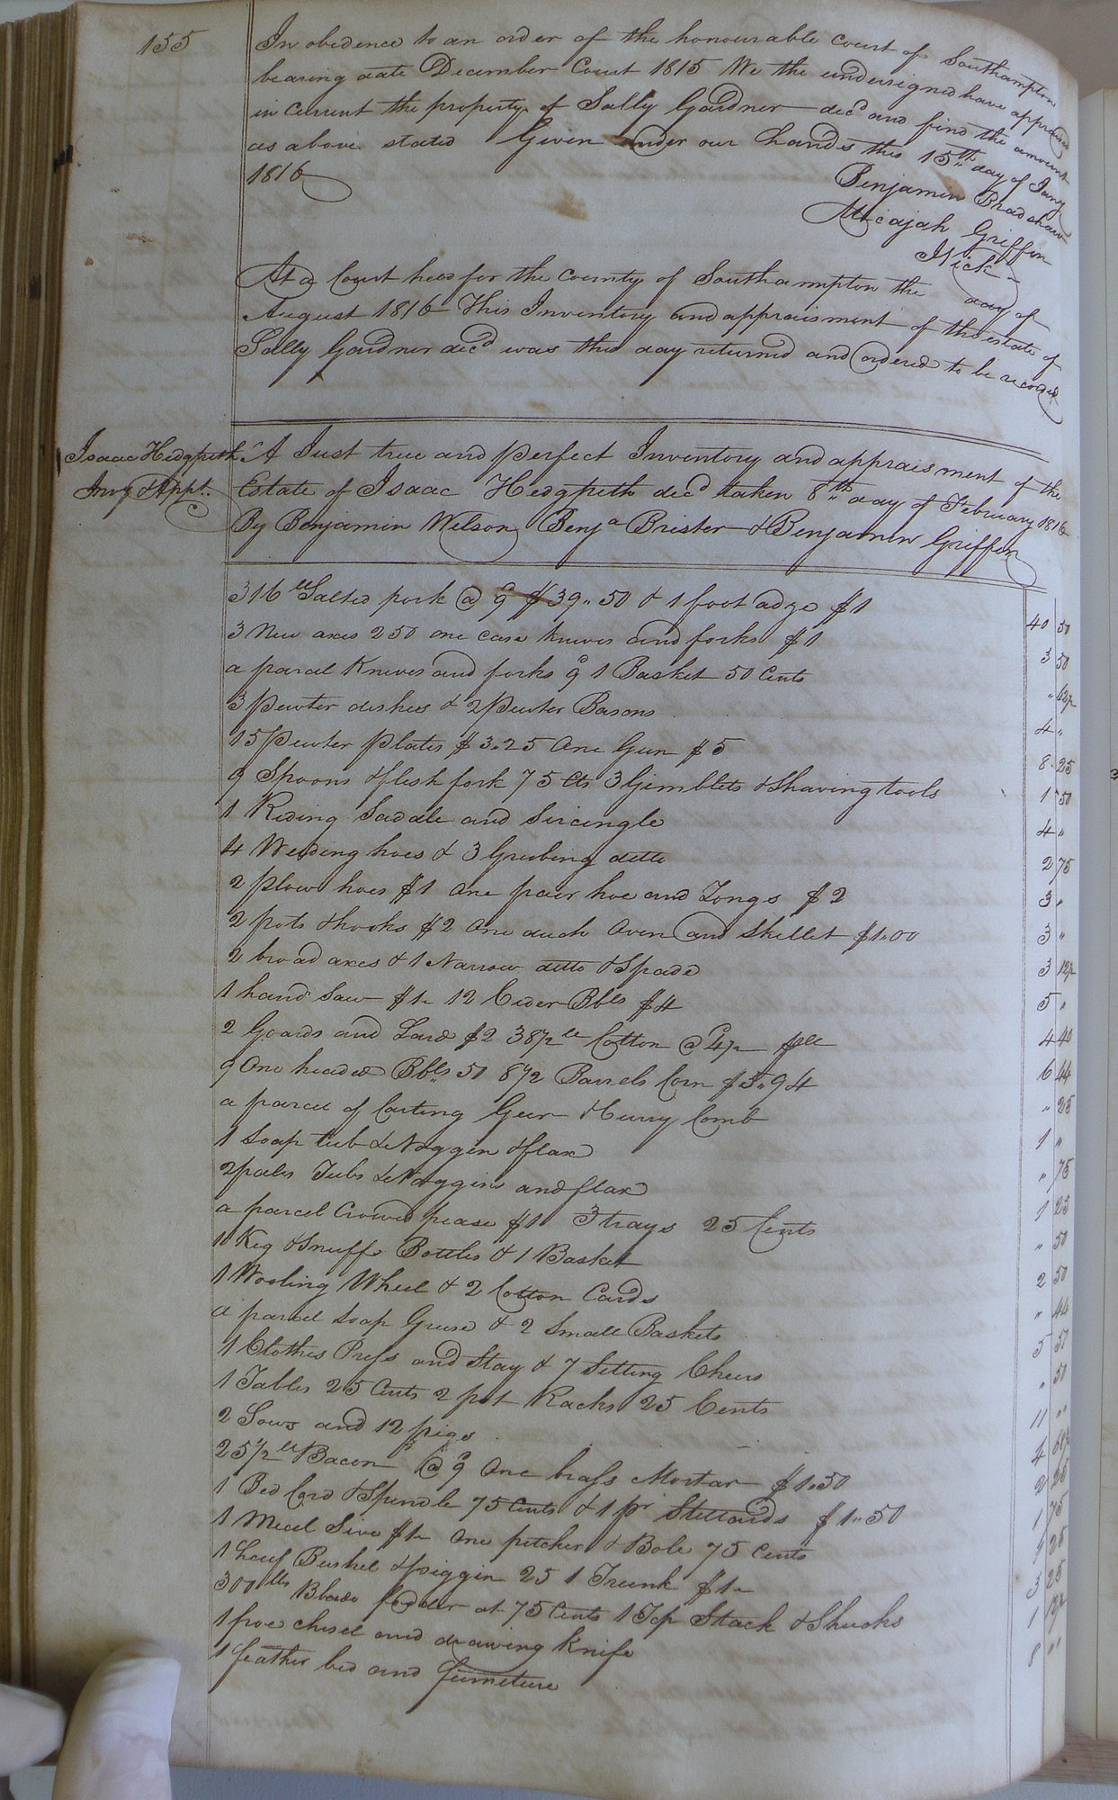 155
In obedience to an order of the honourable Court of Southampton
bearing date December Court 1815 We the undersigned have appraised
in Current the property of Sally Gardner decd and find the amount
as above stated Given under our hands this 15th day of Jany
1816
Benjamin Bradshaw
Micajah Griffin
At a Court held for the County of Southampton the day of
August 1816 This Inventory and appraisment of the estate of
Sally Gardner decd was this day returned and ordered to be recorded
Isaac Hedgpeth
Invy & Appt.
A Just true and perfect Inventory and appraisment of the
Estate of Isaac Hedgpeth decd taken 8th day of February 1816
By Benjamin Wilson Benja Brister & Benjamin Griffin
316 lb Salted pork @ 9 $39.50 & 1 foot adze $1 40 50
3 New axes 250 one case knives and forks $1 3 50
a parcel Knives and forks 1 Basket 50 Cents " 62½
3 Pewter dishes & 2 Pewter Basons 4 "
15 Pewter Plates $3.25 One Gun $5 8 25
9 Spoons & flesh fork 75 Cts 3 Gimblets & Shaving tools 1 50
1 Riding Saddle and Sircingle 4 "
4 Weeding hoes & 3 Grubing ditto 2 75
2 plow hoes $1 One pair hoe and Tongs $2 3 "
2 pots & hooks $2 One duch Oven and Skillet $1.00 3 "
2 broad axes & 1 Narrow ditto & Spade 3 12½
1 hand Saw $1 12 Cider Bbls $4 5 "
2 Goards and Lard $2 38½ lb Cotton @ 4 40
9 One headed Bbls 50 8½ Barrels Corn $5.94 6 44
a parcel of Carting Geer & Curry Comb " 25
1 Soap tub & Noggin & flax 1 "
2 pales Tubs & Noggin and flax " 75
a parcel Crowd pease $1 3 trays 25 Cents 1 25
1 Keg & Snuff Bottles & 1 Basket " 50
1 Wooling Wheel & 2 Cotton Cards 2 50
a parcel Soap Grease & 2 Small Baskets " 44
1 Clothes Press and Stay & 7 Setting Chears 5 37
1 Tables 25 Cents 2 pot Racks 25 Cents " 50
2 Sows and 12 pigs 11 "
25½ lb Bacon @ 9 One brass Mortar $1.50 4
1 Bed Cord & Spindle 75 Cents & 1 pr Stellards $1.50 2 25
1 Meel Sive $1 One pitcher & Bole 75 Cents 1 75
1 half Bushel & piggin 25 1 Trunk $1 1 25
300 lbs Blade fodder at 75 Cents 1 Top Stack & Shucks 3 25
1 froe chisel and drawing Knife 1
1 feather bed and furniture 8 "